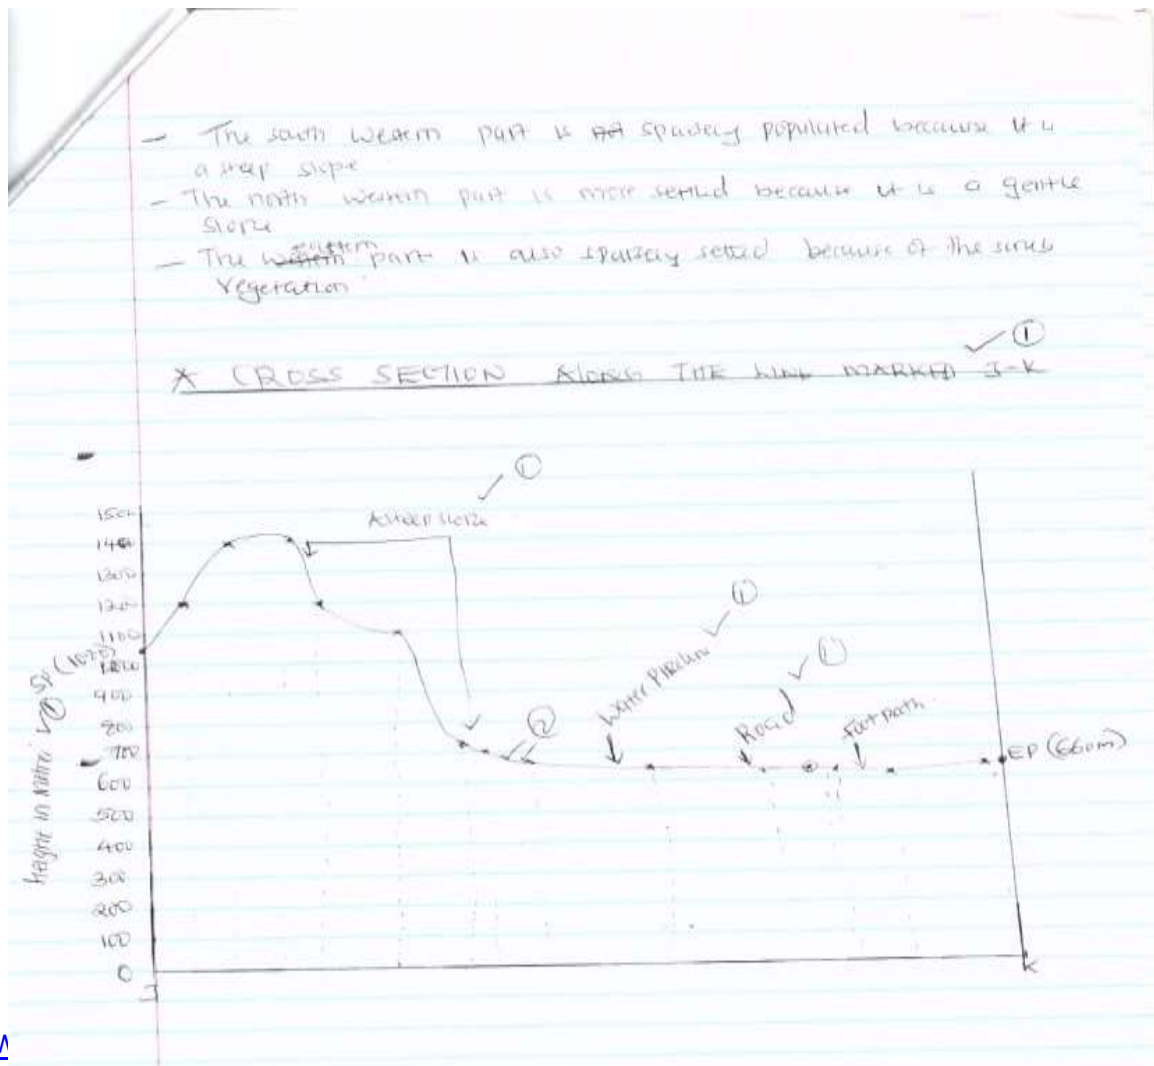 - The south western part is sparsely populated because it is
a steep slope
- The north western part is more settled because it is a gentle
slope
- The eastern part is also sparsely settled because of the scrub
vegetation
* CROSS SECTION ALONG THE LINE MARKED J-K
①
①
A steep slope
1500
1400
1300
1200
1100
SP (1050)
1000
900
800
700
600
500
400
300
200
100
0
Height in metres
②
Water Pipeline
①
Road
①
Foot path
EP (660m)
J
K
W